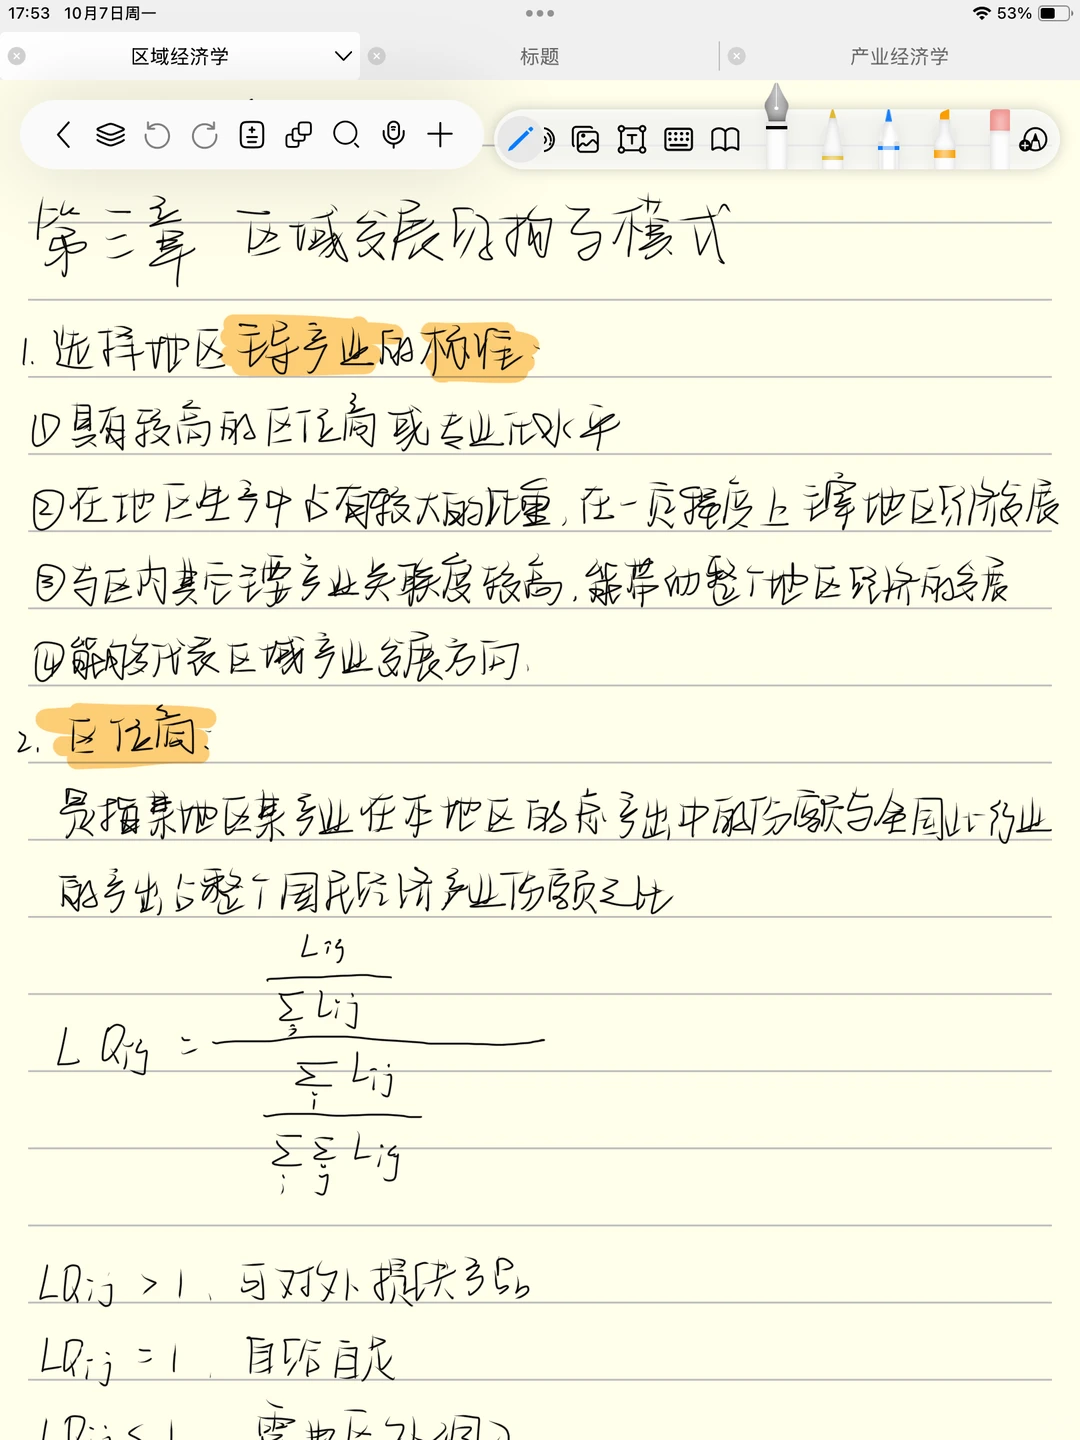 17:53 10月7日周一
53%
区域经济学
标题
产业经济学
第三章 区域发展结构与模式
1. 选择地区主导产业的标准:
①具有较高的区位商或专业化水平
②在地区生产中占有较大的比重,在一定程度上主宰地区经济发展
③与区内其它主要产业关联度较高,能带动整个地区经济的发展
④能够代表区域产业发展方向.
2. 区位商:
是指某地区某产业在本地区的总产出中的份额与全国此行业
的产出占整个国民经济产业份额之比
Lij
∑j Lij
LQij =
∑i Lij
∑i ∑j Lij
LQij > 1, 可对外提供产品
LQij = 1, 自给自足
LQij < 1 需要区外调入